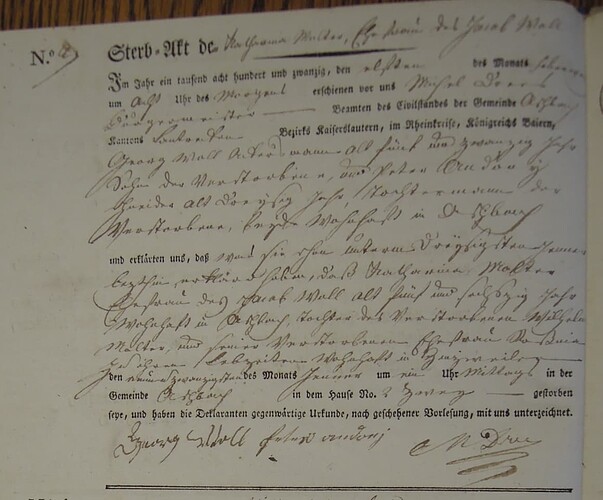 N.º 4
Sterb-Akt de Katharina Molter, Ehefrau des Jacob Woll
Im Jahr ein tausend acht hundert und zwanzig, den elften des Monats
um Acht Uhr des Morgens erschienen vor uns Michel
Burgermeister Beamten des Civilstandes der Gemeinde Aschbach
Kantons Lautereken Bezirks Kaiserslautern, im Rheinkreise, Königreichs Baiern,
Georg Woll Ackersmann alt fünf und zwanzig Jahr
Sohn der Verstorbene, und Peter
Schneider alt Dreysig Jahr, Tochtermann der
Verstorbene, beyde Wohnhaft in Aschbach
und erklärten uns, daß was sie schon unterm Dreysigsten Jenner
letzthin erklärd haben, daß Katharina Molter
Ehefrau des Jacob Woll alt fünf und sechszig Jahr
Wohnhaft in Aschbach, Tochter des Verstorbenen Wilhelm
Molter, und seiner Verstorbenen Ehefrau
zu ihren Lebzeiten Wohnhaft in
den neun u zwanzigsten des Monats Jenner um ein Uhr Mittags in der
Gemeinde Aschbach in dem Hause No. 2 zwey gestorben
seye, und haben die Deklaranten gegenwärtige Urkunde, nach geschehener Vorlesung, mit uns unterzeichnet.
Georg Woll Peter